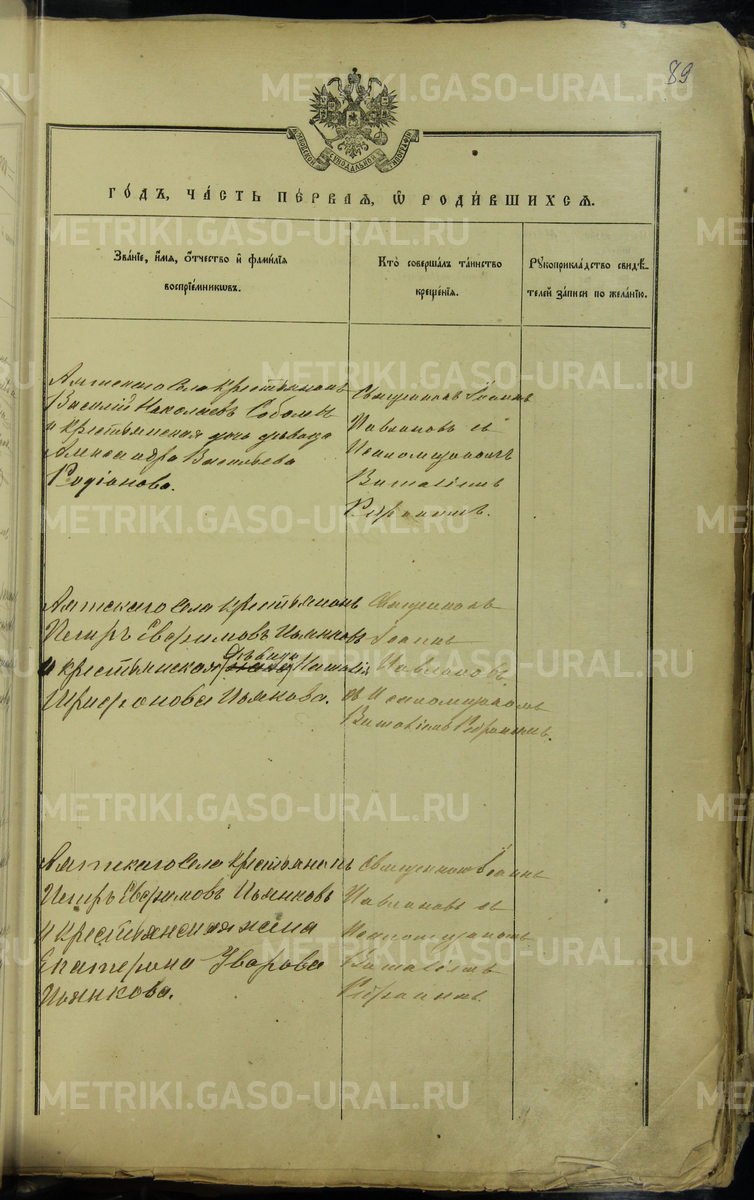 89
МОСКОВСКОЙ СѴНОДАЛЬНОЙ ТИПОГРАФІИ
ГО́ДЪ, ЧА́СТЬ ПЕ́РВАЯ, Ѡ҆ РОДИ́ВШИХСѦ.
Зва́нїе, и҆́мѧ, ѻ҆́тчество и҆ фами́лїѧ
воспрїе́мникѡвъ.
Кто̀ соверша́лъ та́инство
креще́нїѧ.
Рꙋкоприкла́дство свидѣ́-
телей за́писи по жела́нїю.
Аятскаго села крестьянинъ
Василій Николаевъ
и крестьянская дѣвица
Александра Васильева
Родіонова.
Священникъ Іоаннъ
Павлиновъ съ
Псаломщикомъ
Виталіемъ
Аятскаго села крестьянинъ
Петръ Евфимовъ Пьянковъ
и крестьянская дѣвица Наталія
Трифонова Пьянкова.
Священникъ
Іоаннъ
Павлиновъ
съ Псаломщикомъ
Виталіемъ
Аятскаго села крестьянинъ
Петръ Евфимовъ Пьянковъ
и крестьянская жена
Екатерина Уварова
Пьянкова.
Священникъ Іоаннъ
Павлиновъ съ
Псаломщикомъ
Виталіемъ
METRIKI.GASO-URAL.RU